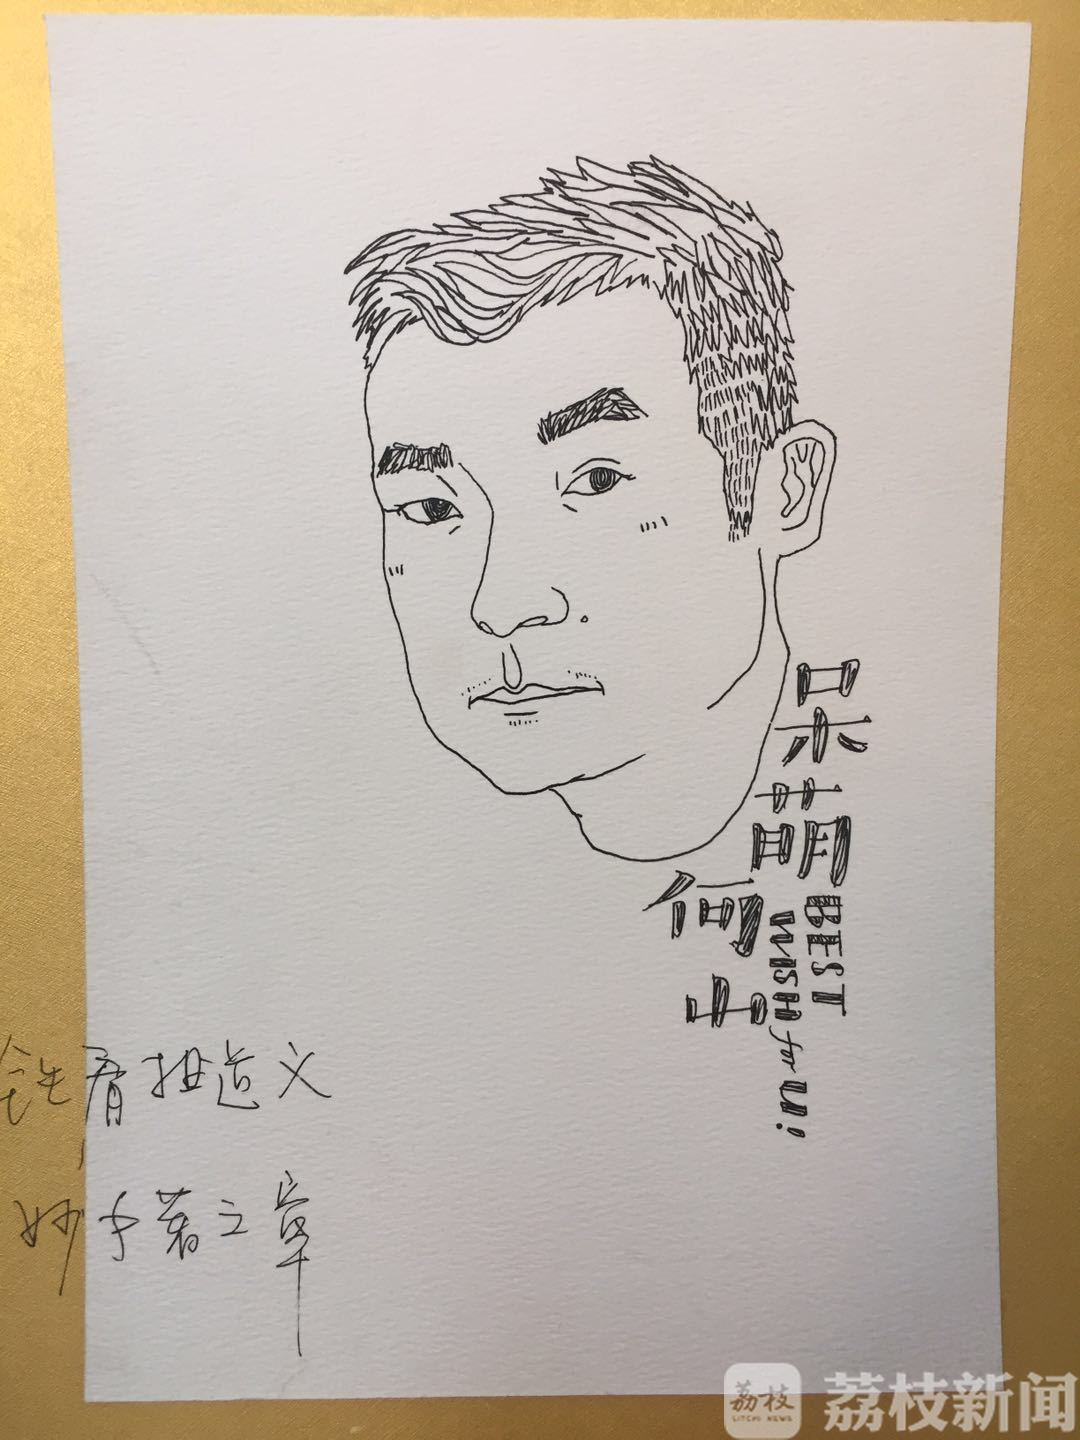 呆萌
何山
BEST
WISH for U!
铁肩担道义
妙手著文章
荔枝
LITCHI NEWS
荔枝新闻